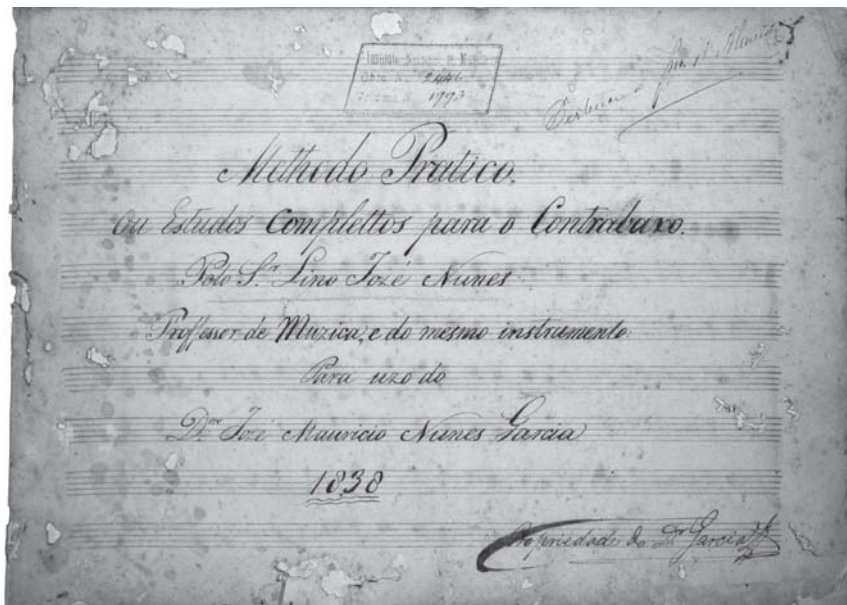 Instituto Nacional de Musica
Obra N. 2446
Volume N. 1793
Methodo Pratico.
Ou Estudos Complettos para o Contrabaxo.
Pelo Sr. Lino Jozé Nunes
Proffessor de Muzica, e do mesmo instrumento.
Para uzo do
Dor. Jozé Mauricio Nunes Garcia
1838
Propriedade do Dr. Garcia